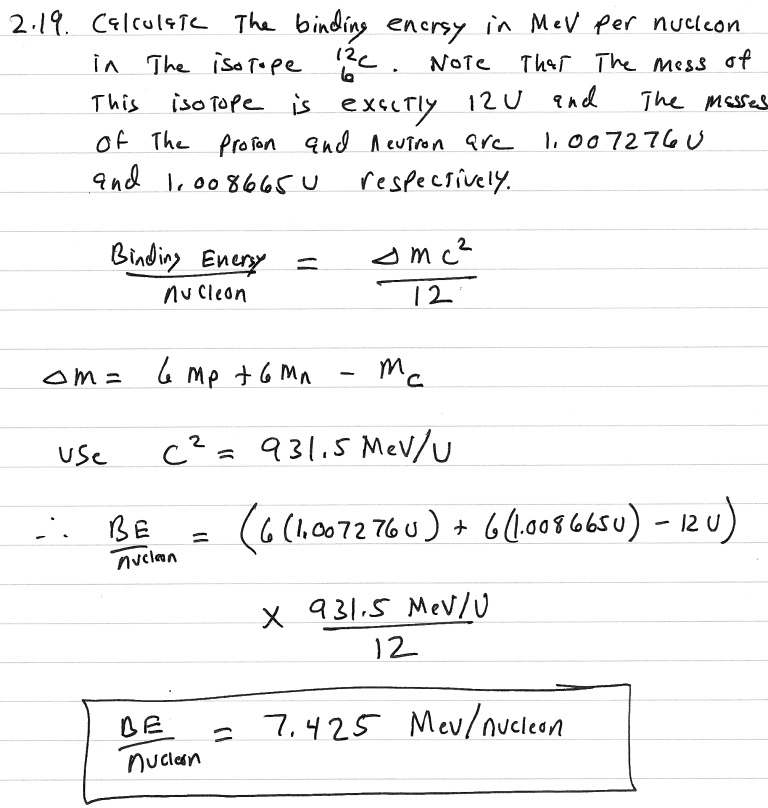 2.19. Calculate The binding energy in MeV per nucleon
in The isotope ¹²₆C. Note That The mess of
This isotope is exactly 12U and The masses
of The proton and neutron are 1.007276U
and 1.008665U respectively.
Binding Energy/nucleon = Δmc²/12
Δm = 6 Mp + 6 Mn - Mc
Use C² = 931.5 MeV/U
∴ BE/nucleon = (6(1.007276U) + 6(1.008665U) - 12U)
× 931.5 MeV/U/12
BE/nucleon = 7.425 Mev/nucleon